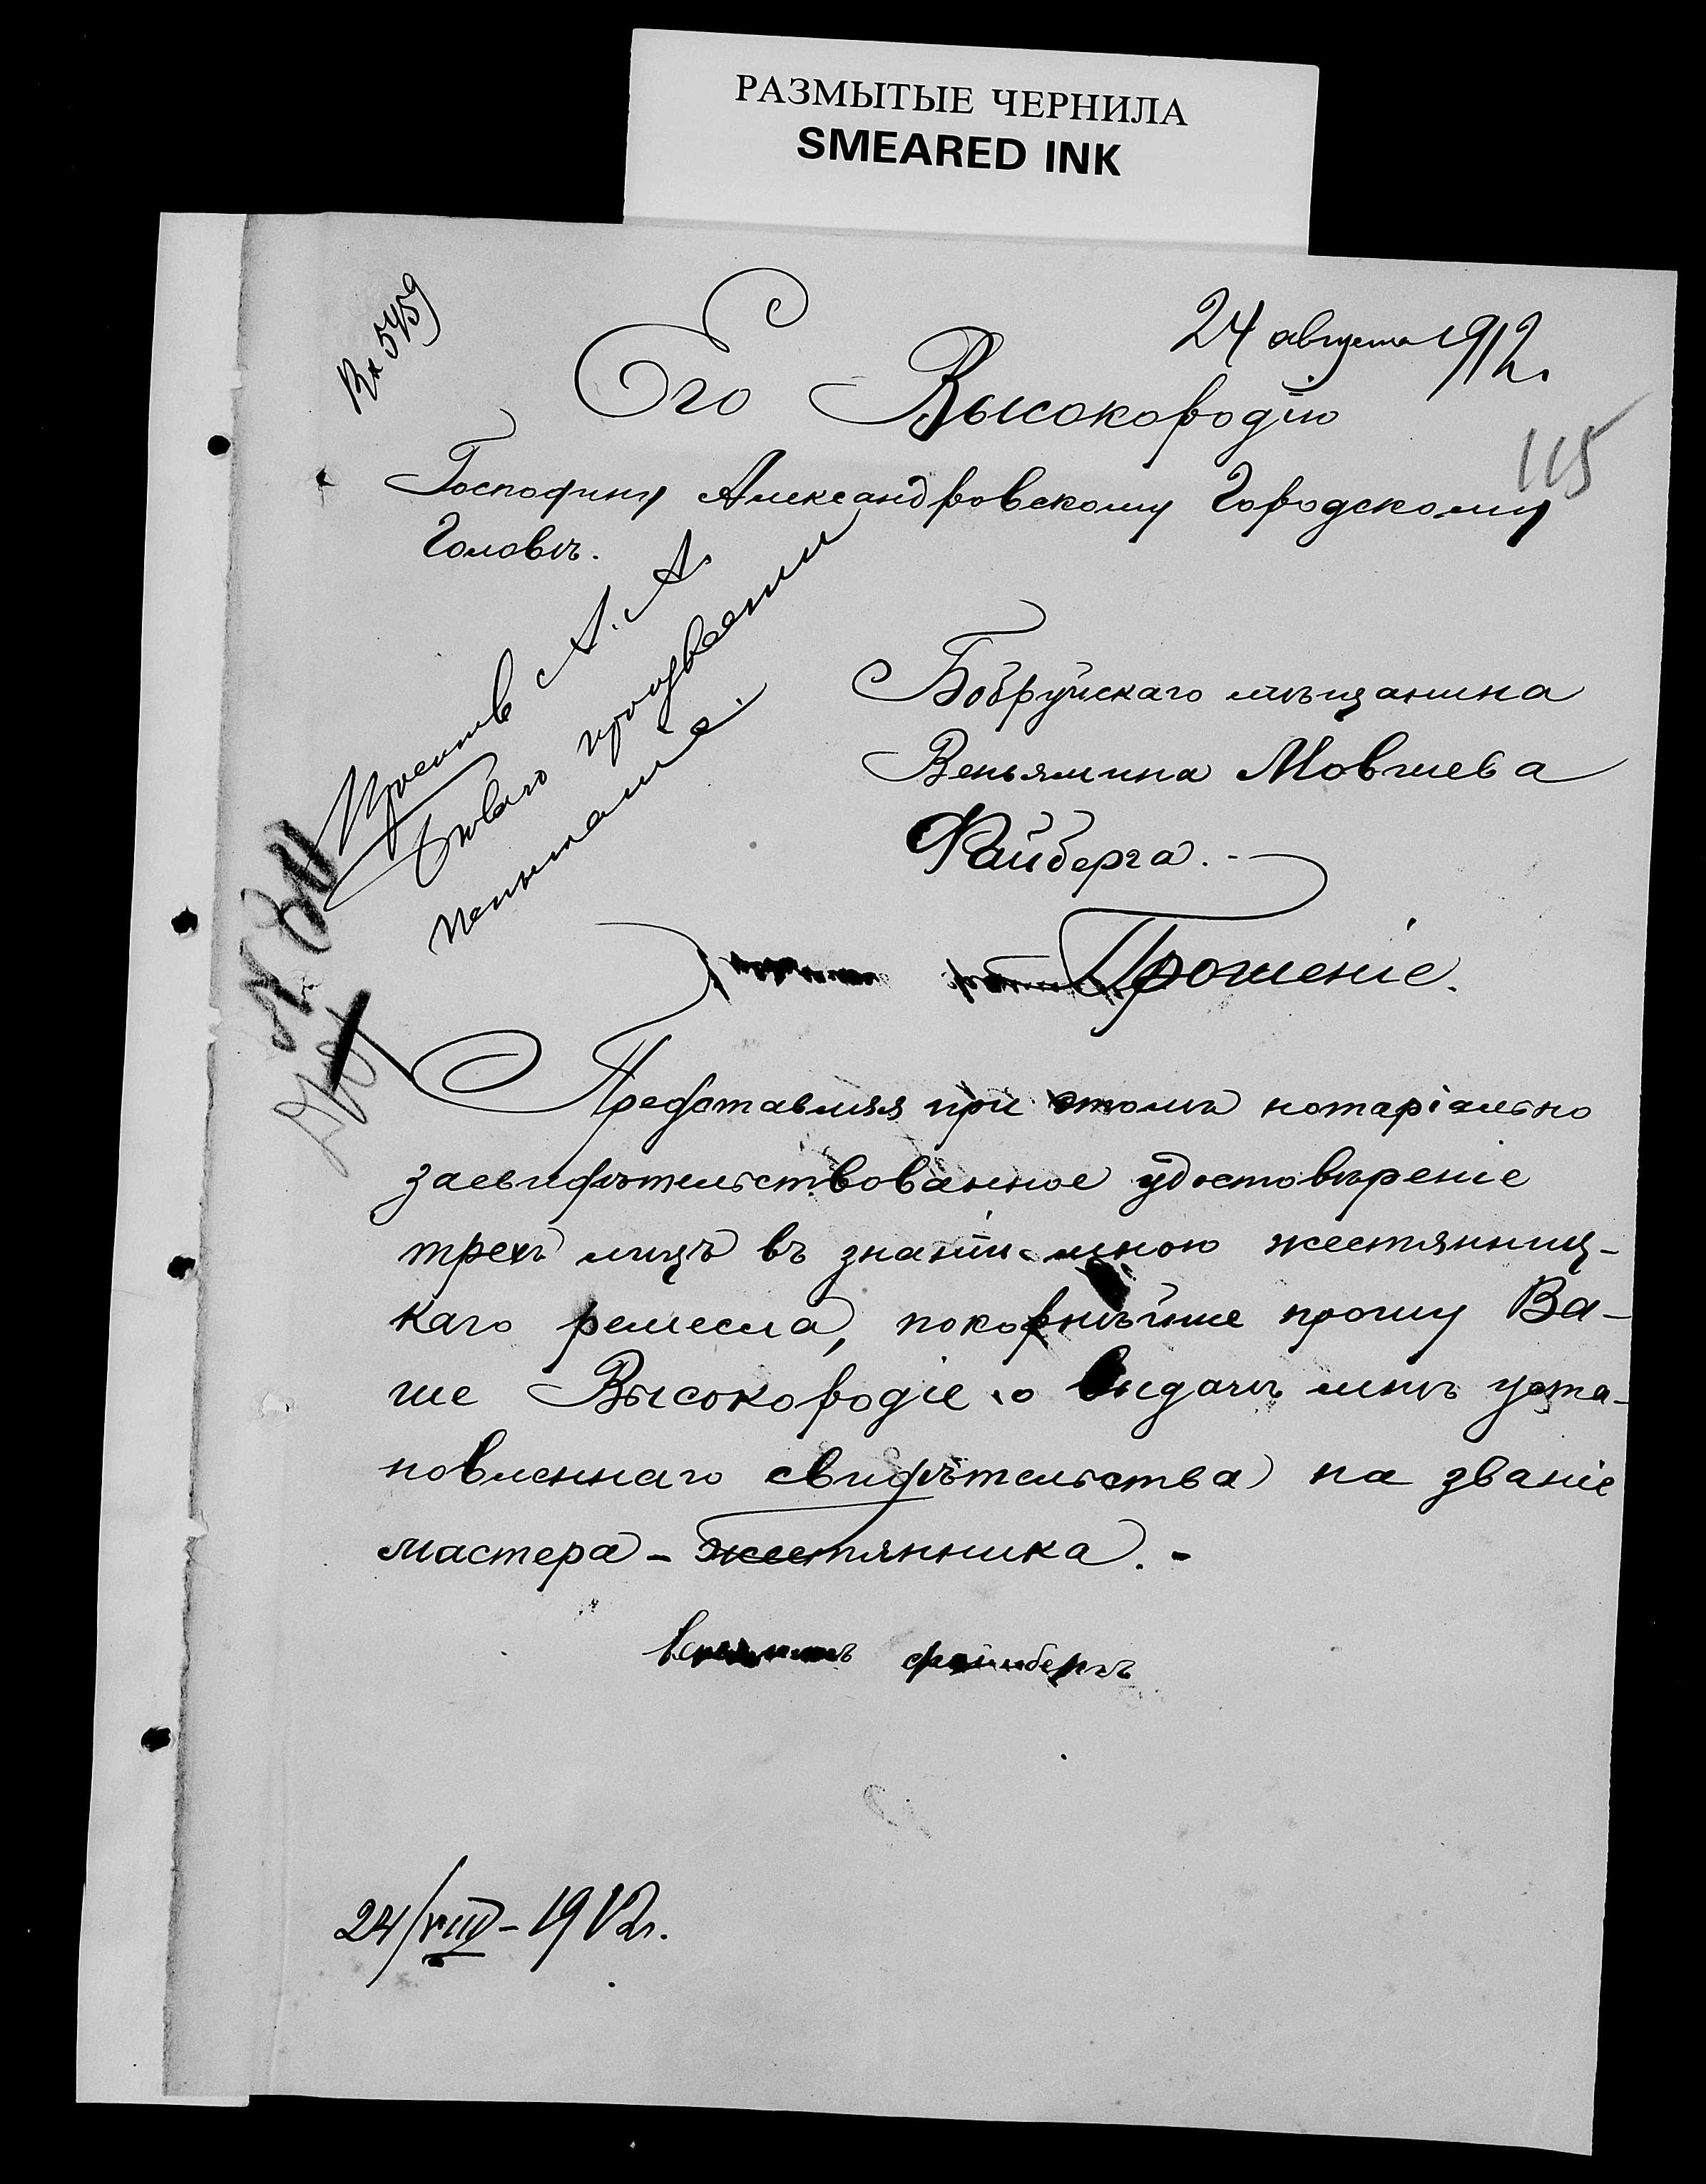 РАЗМЫТЫЕ ЧЕРНИЛА
SMEARED INK
Вх 5459
24 августа 1912 г.
Его Высокородію
115
Господину Александровскому Городскому
Головѣ.
Просить А. А.
произвести
испытаніе.
Бобруйскаго мѣщанина
Веньямина Мовшева
Файберга.
Прошеніе.
Представляя при этомъ нотаріально
засвидѣтельствованное удостовѣреніе
трехъ лицъ въ знаніи мною жестянниц-
каго ремесла, покорнѣйше прошу Ва-
ше Высокородіе о выдачѣ мнѣ уста-
новленнаго свидѣтельства на званіе
мастера - жестянника. -
файнбергъ
24/VIII - 1912 г.